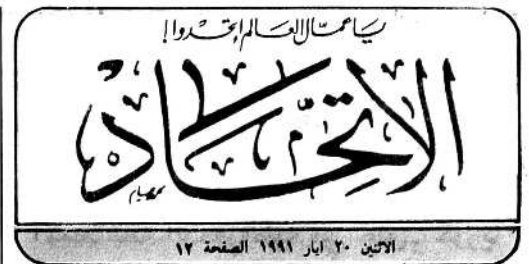 يا عمّال العالم إتحدوا!
الاتحاد
الاثنين ٢٠ ايار ١٩٩١ الصفحة ١٢